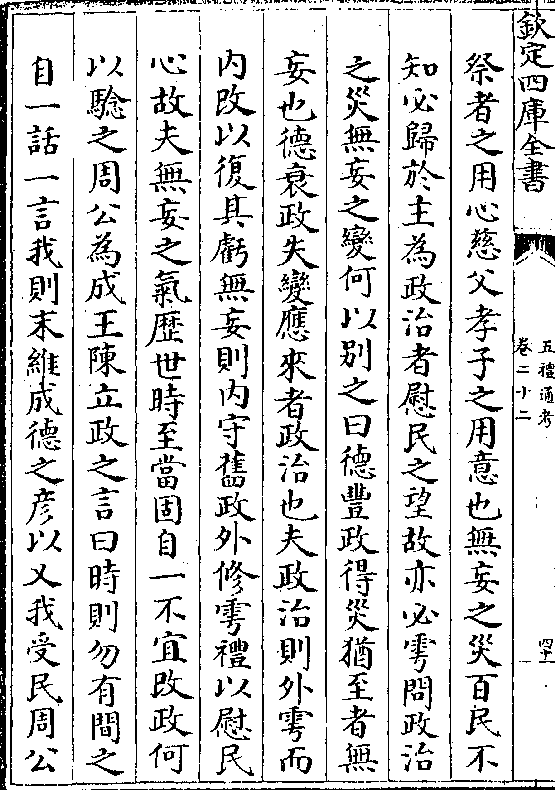 欽定四庫全書
五禮通考
卷二十二
四十
祭者之用心慈父孝子之用意也無妄之災百民不
知必歸於主為政治者慰民之望故亦必雩問政治
之災無妄之變何以别之曰德豐政得災猶至者無
妄也德衰政失變應來者政治也夫政治則外雩而
内改以復其虧無妄則内守舊政外修雩禮以慰民
心故夫無妄之氣歴世時至當固自一不宜改政何
以騐之周公為成王陳立政之言曰時則勿有間之
自一話一言我則末維成德之彦以乂我受民周公